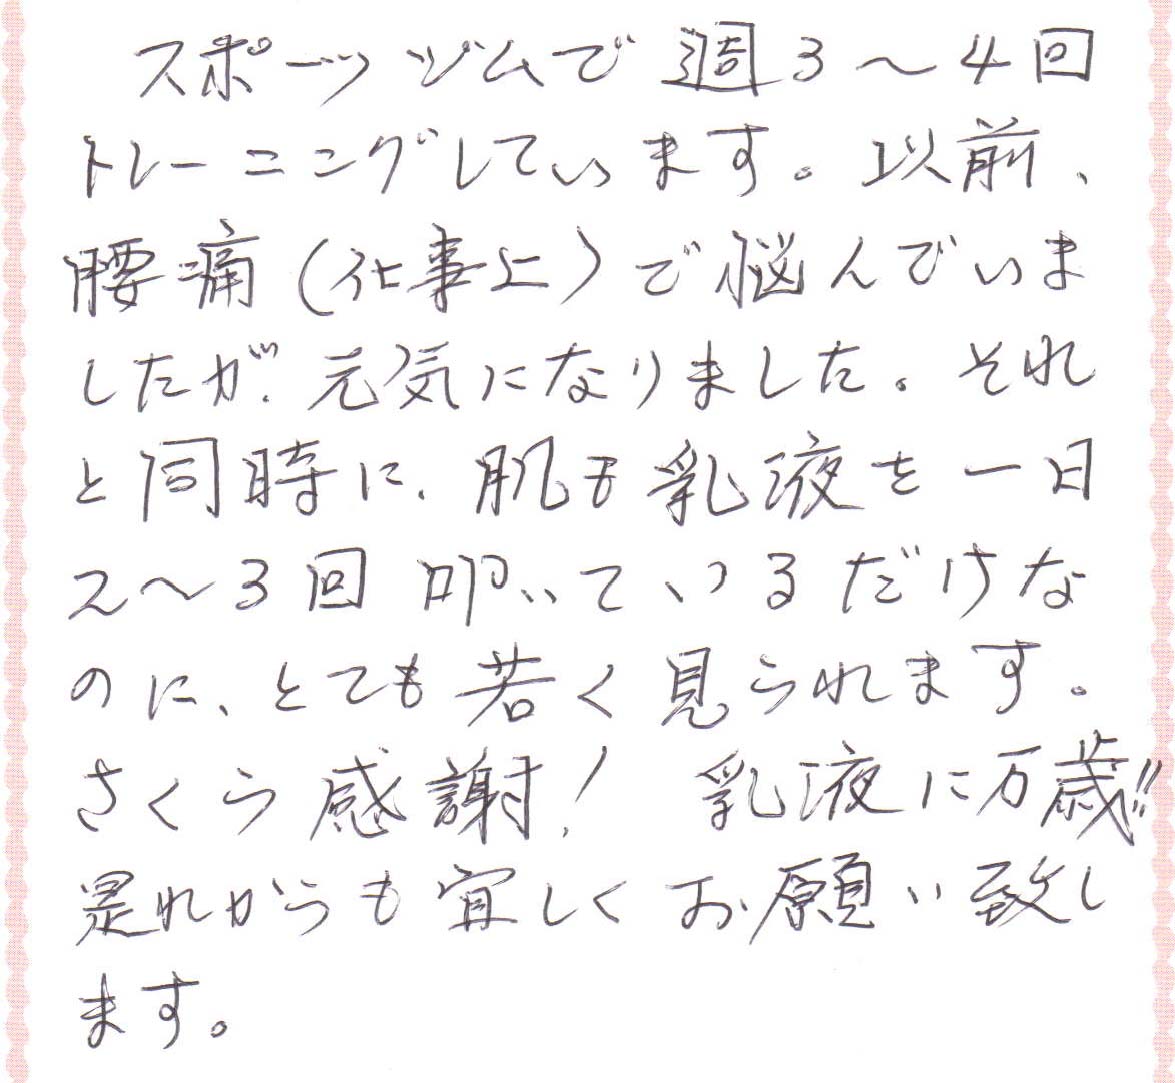 スポーツジムで週3〜4回
トレーニングしています。以前、
腰痛(仕事上)で悩んでいま
したが、元気になりました。それ
と同時に、肌も乳液を一日
2〜3回叩いているだけな
のに、とても若く見られます。
さくら感謝! 乳液に万歳!!
是れからも宜しくお願い致し
ます。